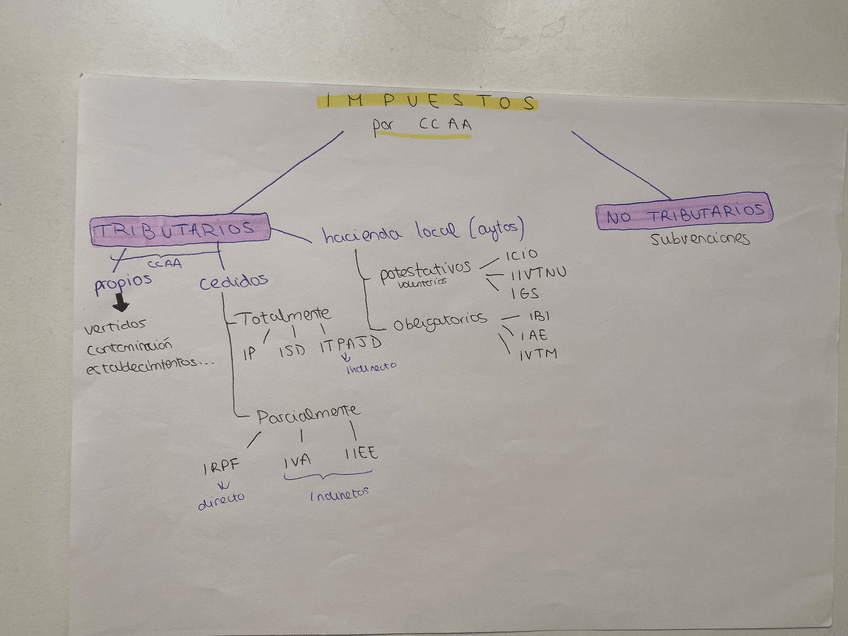 IMPUESTOS
por CCAA
TRIBUTARIOS
NO TRIBUTARIOS
Subvenciones
hacienda local (aytos)
CCAA
propios
cedidos
potestativos
voluntarios
ICIO
IIVTNU
IGS
Obligatorios
IBI
IAE
IVTM
vertidos
contaminación
establecimientos...
Totalmente
IP
ISD
ITPAJD
indirecto
Parcialmente
IRPF
IVA
IIEE
directo
Indirectos